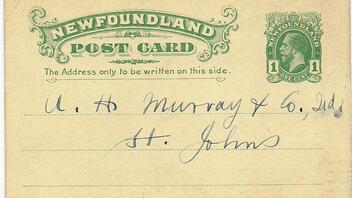 NEWFOUNDLAND
POST CARD
The Address only to be written on this side.
NEWFOUNDLAND
1 1
ONE CENT
A. H. Murray & Co., Ltd
St. Johns